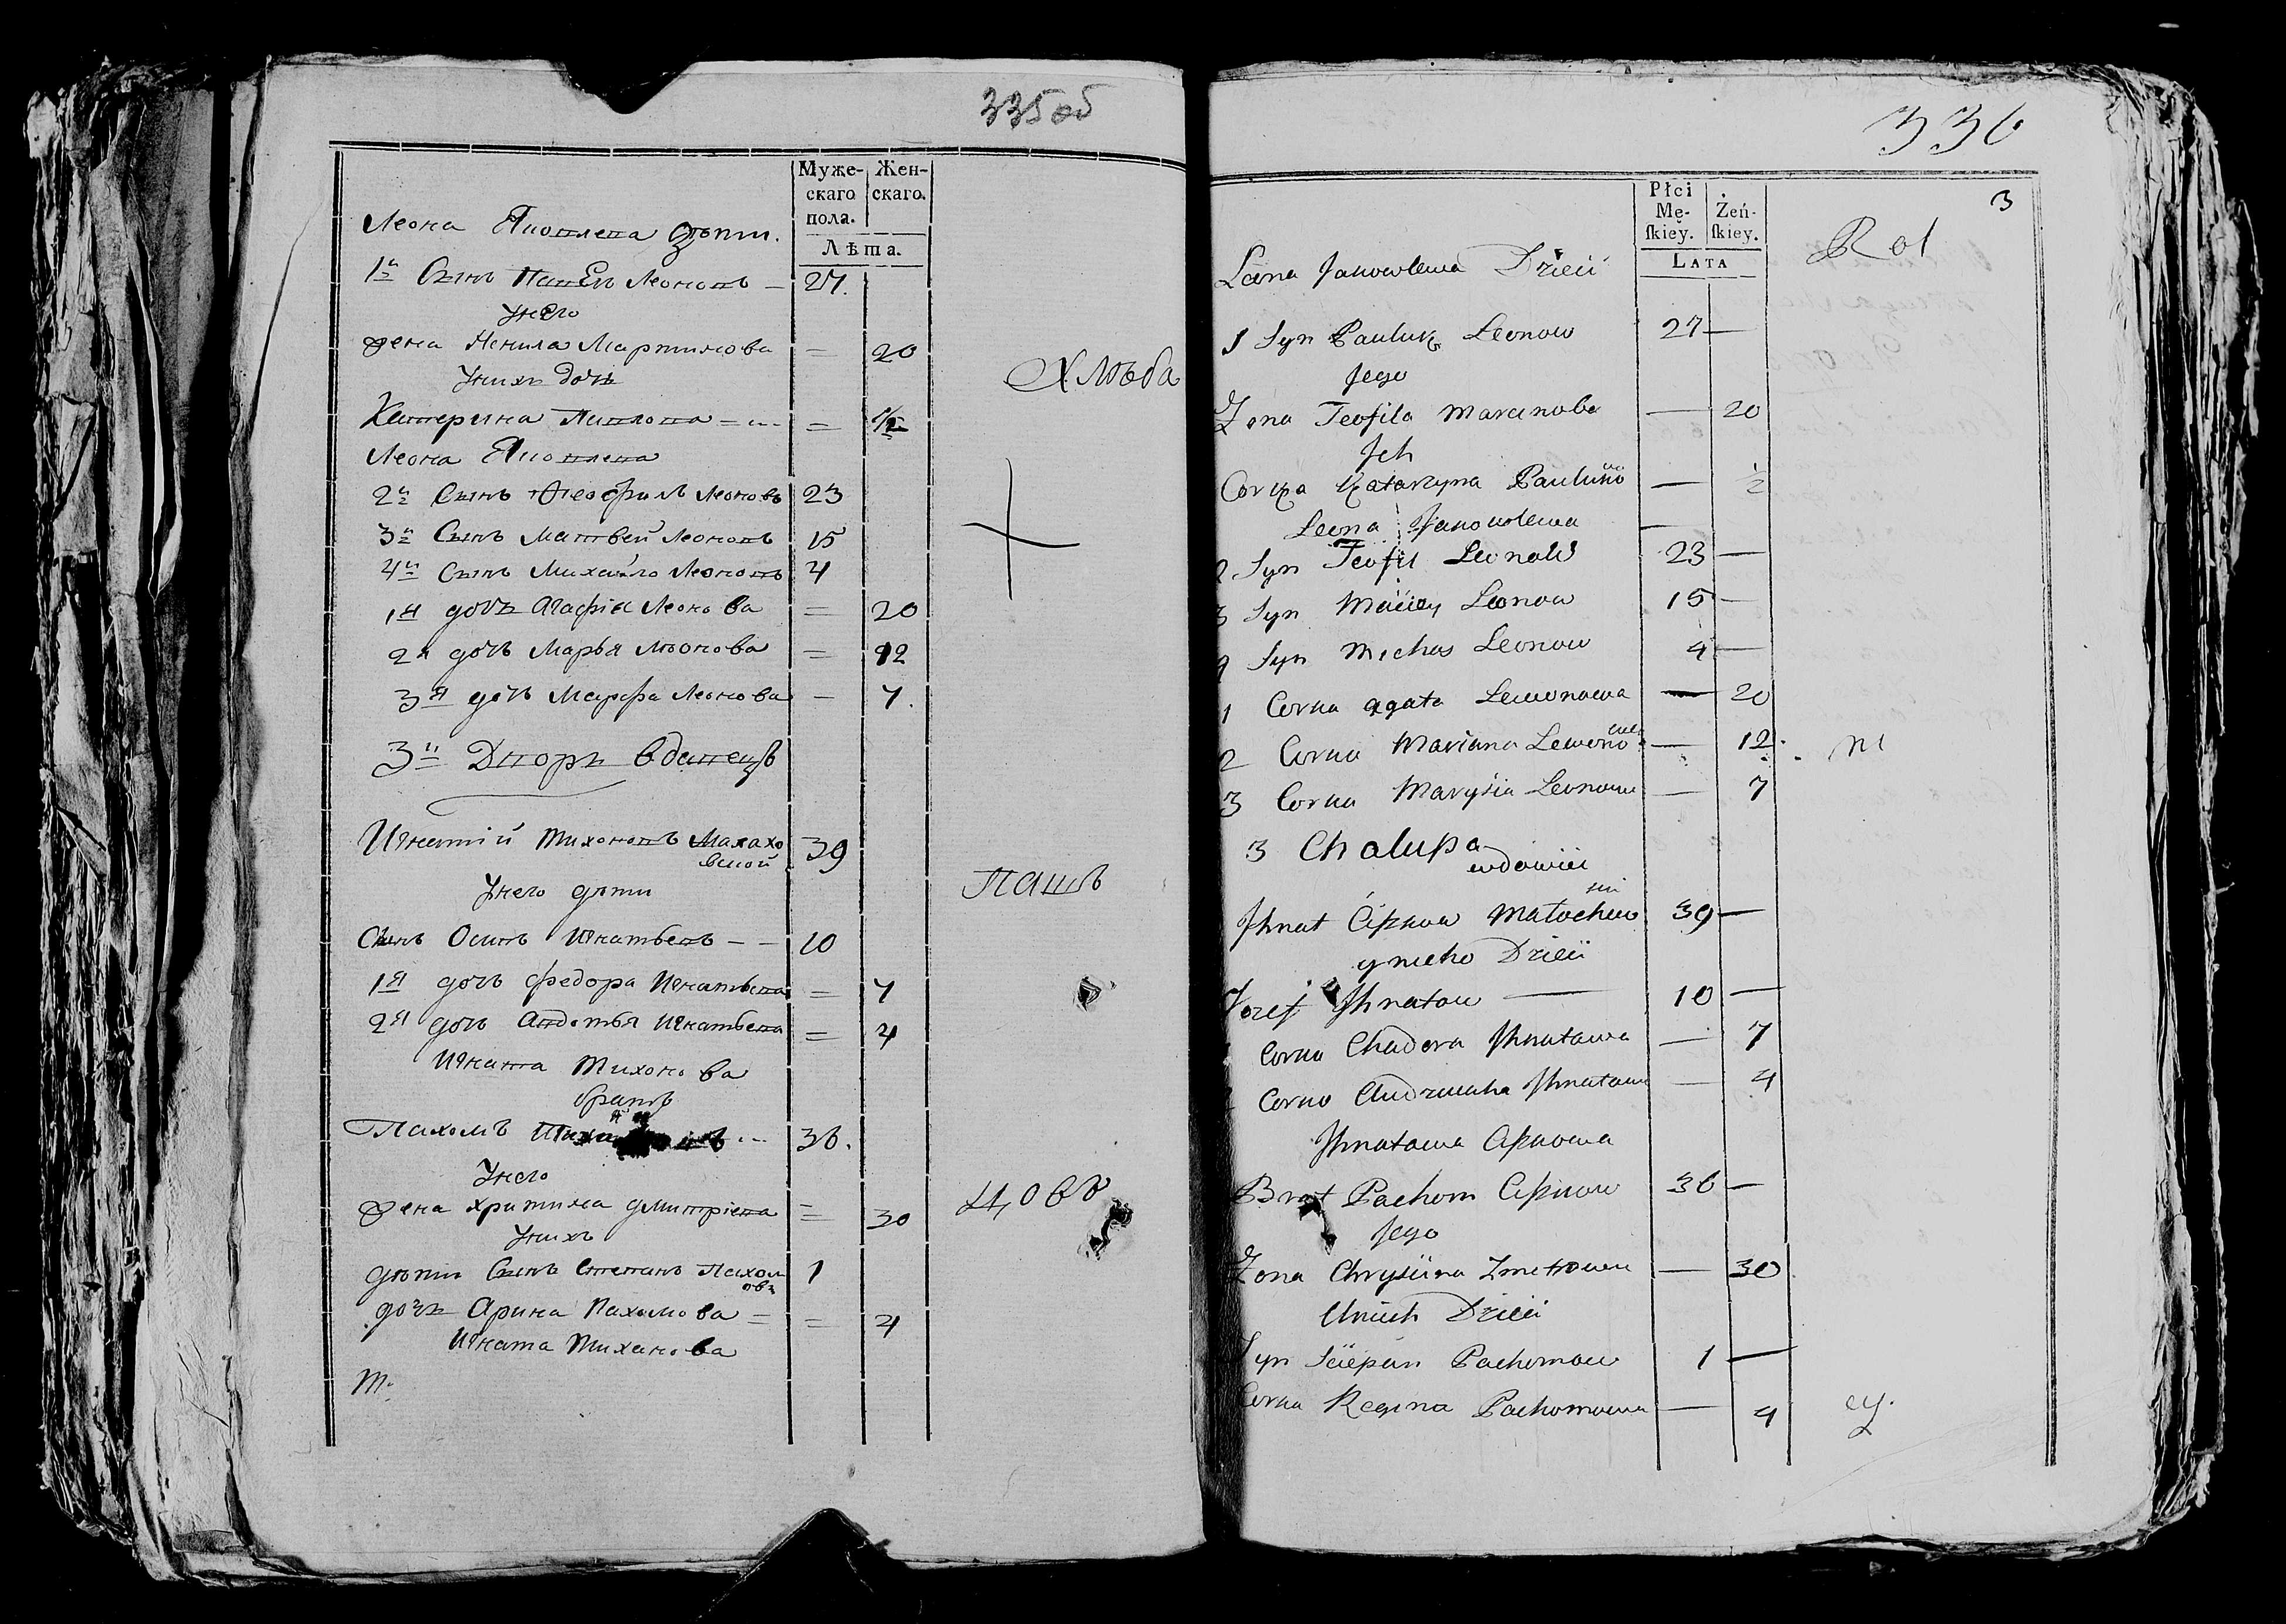 335 об
Муже-
скаго
пола.
Жен-
скаго.
Лѣта.
Леона Яковлева дѣти.
1й Сынъ Павелъ Леоновъ — 27.
У него
жена Ненила Мартинова = 20
У нихъ дочь
Катерина Павлова = 1/2
Леона Яковлева
2й Сынъ Ѳеофилъ Леоновъ 23
3й Сынъ Матвей Леоновъ 15
4й Сынъ Михайло Леоновъ 4
1я дочь Агафія Леонова = 20
2я дочь Марья Леонова = 12
3я дочь Марфа Леонова — 7.
3й Дворъ вдовецъ
Игнатій Тихоновъ Малахо
вской 39
У него дѣти
Сынъ Осипъ Игнатьевъ — — 10
1я дочь Федора Игнатьева = 7
2я дочь Авдотья Игнатьева = 4
Игната Тихонова
братъ
Пахомъ 36.
У него
жена Христина Дмитріева = 30
У нихъ
дѣти Сынъ Степанъ Пахом
овъ 1
дочь Арина Пахомова = = 4
Игната Тихонова
м.
Хлѣба
Пашъ
336
3
Płci
Mę-
skiey.
Żeń-
skiey.
Lata
Rol
Leona Jakowlewa Dzieci
1 Syn Pauluk Leonow 27 —
Jego
Zona Teofila Marcinowa — 20
Jch
Corka Katarzyna Pauluko
wa — 1/2
Leona Jakowlewa —
2 Syn Teofil Leonow 23 —
3 Syn Maciey Leonow 15 —
4 Syn Michas Leonow 4 —
1 Corka Agata Lewonowa — 20
2 Corka Maryana Lewono
wa — 12.
3 Corka Marysia Leonowa — 7
3 Chalupa
wdowiec
Jhnat Cipkow Małochow
ski 39 —
y nieho Dzieci
Jozef Jhnatow — 10 —
Corka Chadora Jhnatowa — 7
Corka Audziucha Jhnatowa — 4
Jhnatowa Cipkowa
Brat Pachom Cipkow 36 —
Jego
Zona Chrystina Zmitrowa — 30
Unich Dzieci
Syn Sciepan Pachomow 1 —
Corka Regina Pachomowa — 4